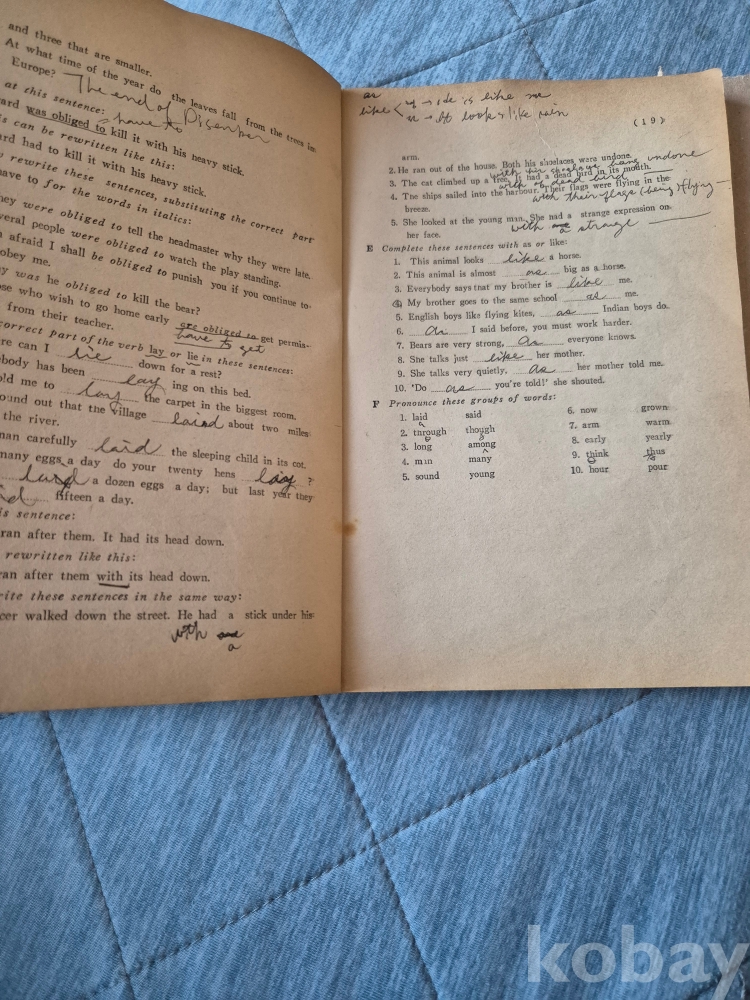 and three that are smaller.
At what time of the year do the leaves fall from the trees in
Europe? The end of
at this sentence: have to
ard was obliged to kill it with his heavy stick.
is can be rewritten like this:
ard had to kill it with his heavy stick.
rewrite these sentences, substituting the correct part
have to for the words in italics:
ney were obliged to tell the headmaster why they were late.
everal people were obliged to watch the play standing.
n afraid I shall be obliged to punish you if you continue to
obey me.
ny was he obliged to kill the bear?
ose who wish to go home early are obliged to get permis-
from their teacher. have to get
correct part of the verb lay or lie in these sentences:
ere can I lie down for a rest?
ebody has been lay ing on this bed.
old me to lay the carpet in the biggest room.
ound out that the village laind about two miles
the river.
man carefully laid the sleeping child in its cot.
many eggs a day do your twenty hens lay ?
laid a dozen eggs a day; but last year they
fifteen a day.
is sentence:
ran after them. It had its head down.
rewritten like this:
ran after them with its head down.
rite these sentences in the same way:
cer walked down the street. He had a stick under his
with a
as
like is like me
look like rain
(19)
arm.
2. He ran out of the house. Both his shoelaces were undone.
with his undone
3. The cat climbed up a tree. It had a dead bird in its mouth.
with dead bird
4. The ships sailed into the harbour. Their flags were flying in the
with their flags (being) flying
breeze.
5. She looked at the young man. She had a strange expression on
with a strange
her face.
E Complete these sentences with as or like:
1. This animal looks like a horse.
2. This animal is almost as big as a horse.
3. Everybody says that my brother is like me.
4. My brother goes to the same school as me.
5. English boys like flying kites, as Indian boys do.
6. As I said before, you must work harder.
7. Bears are very strong, As everyone knows.
8. She talks just like her mother.
9. She talks very quietly, As her mother told me.
10. 'Do as you're told!' she shouted.
F Pronounce these groups of words:
1. laid said 6. now grown
2. through though 7. arm warm
3. long among 8. early yearly
4. man many 9. think thus
5. sound young 10. hour pour
kobay